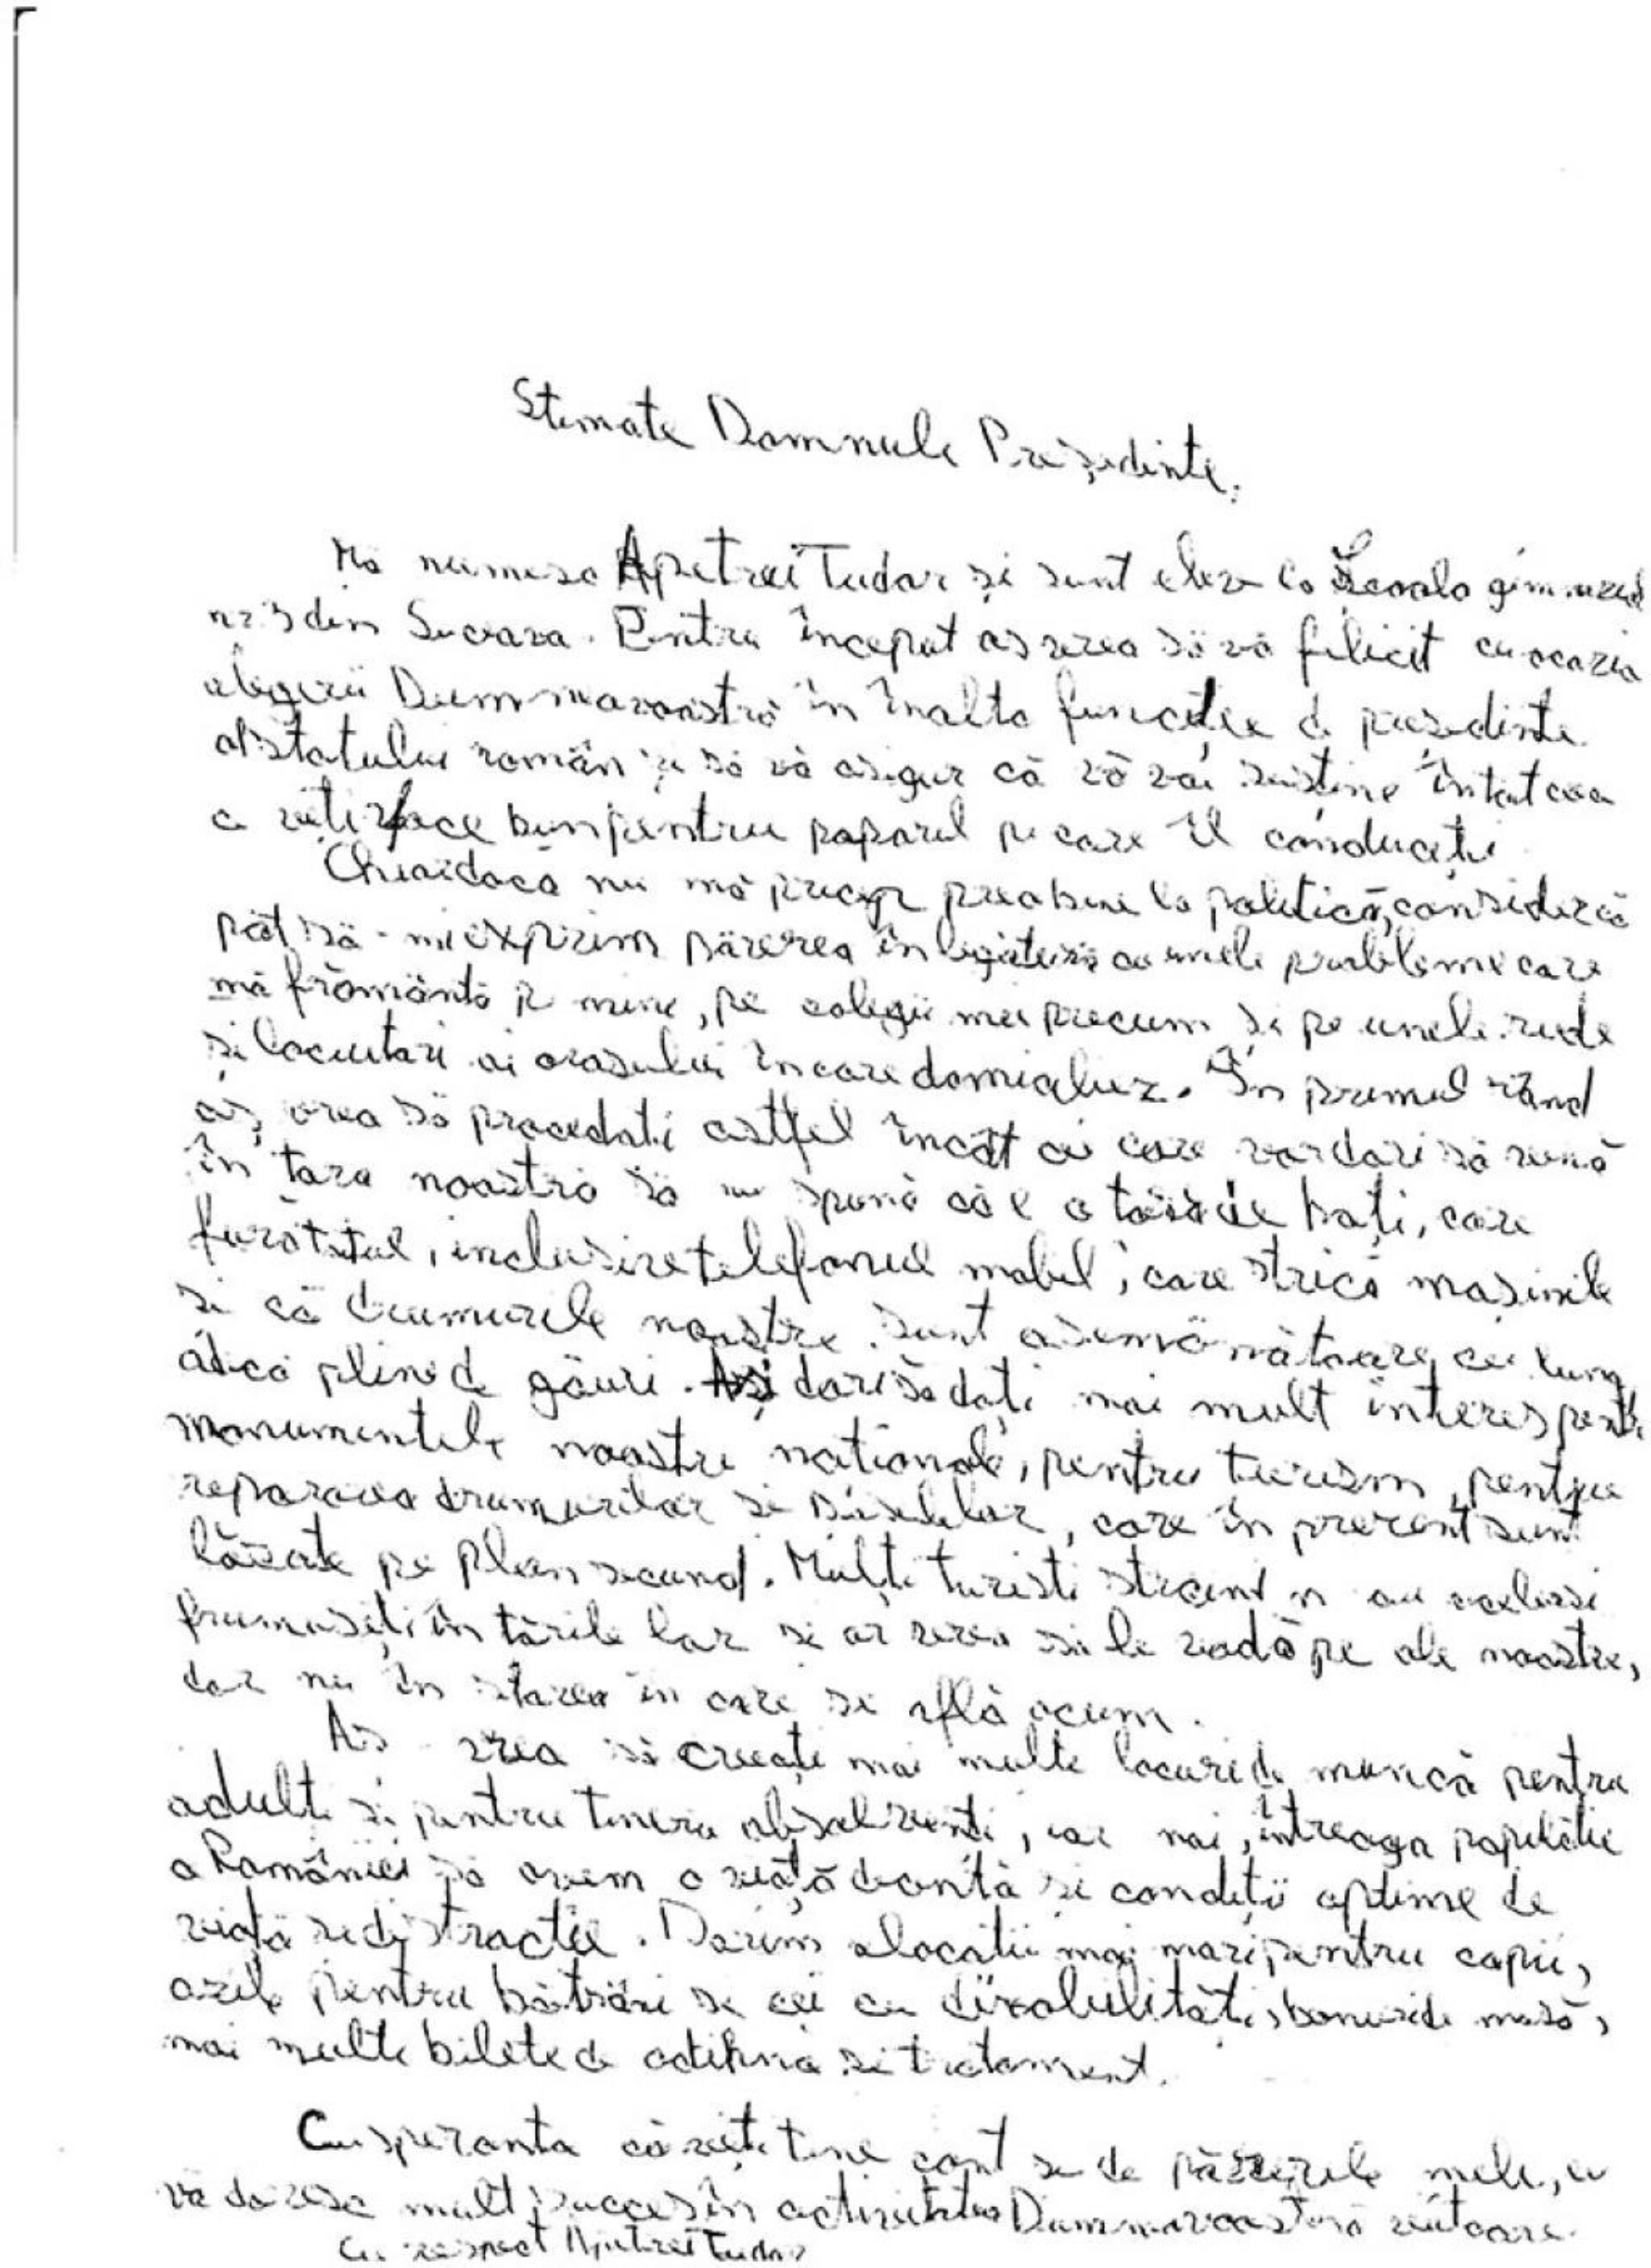 Stimate Domnule Președinte,
Mă numesc Apetrei Tudor și sunt elev la Școala gimnazială
nr 3 din Suceava. Pentru început aș vrea să vă felicit cu ocazia
alegerii Dumneavoastră în înalta funcție de președinte
al statului român și să vă asigur că vă voi susține în tot ceea
ce veți face bun pentru poporul pe care îl conduceți
Chiar dacă nu mă pricep prea bine la politică, consider că
pot să-mi exprim părerea în legătură cu unele probleme care
mă frământă pe mine, pe colegii mei precum și pe unele rude
și locuitori ai orașului în care domiciliez. În primul rând
aș vrea să procedați astfel încât cei care vor dori să vină
în țara noastră să nu spună că e o țară de hoți, care
fură totul, inclusiv telefonul mobil, care strică mașinile
și că drumurile noastre sunt asemănătoare cu luna,
adică pline de găuri. Aș dori să dați mai mult interes pentru
monumentele noastre naționale, pentru turism, pentru
repararea drumurilor și șoselelor, care în prezent sunt
lăsate pe plan secund. Mulți turiști străini n-au aceleași
frumuseți în țările lor și ar vrea să le vadă pe ale noastre,
dar nu în starea în care se află acum.
Aș vrea să creați mai multe locuri de muncă pentru
adulți și pentru tinerii absolvenți, iar noi, întreaga populație
a României să avem o viață decentă și condiții optime de
viață și distracție. Dorim alocații mai mari pentru copii,
azile pentru bătrâni și cei cu dizabilități, bonuri de masă,
mai multe bilete de odihnă și tratament.
Cu speranța că veți ține cont și de părerile mele, eu
vă doresc mult succes în activitatea Dumneavoastră viitoare.
Cu respect Apetrei Tudor